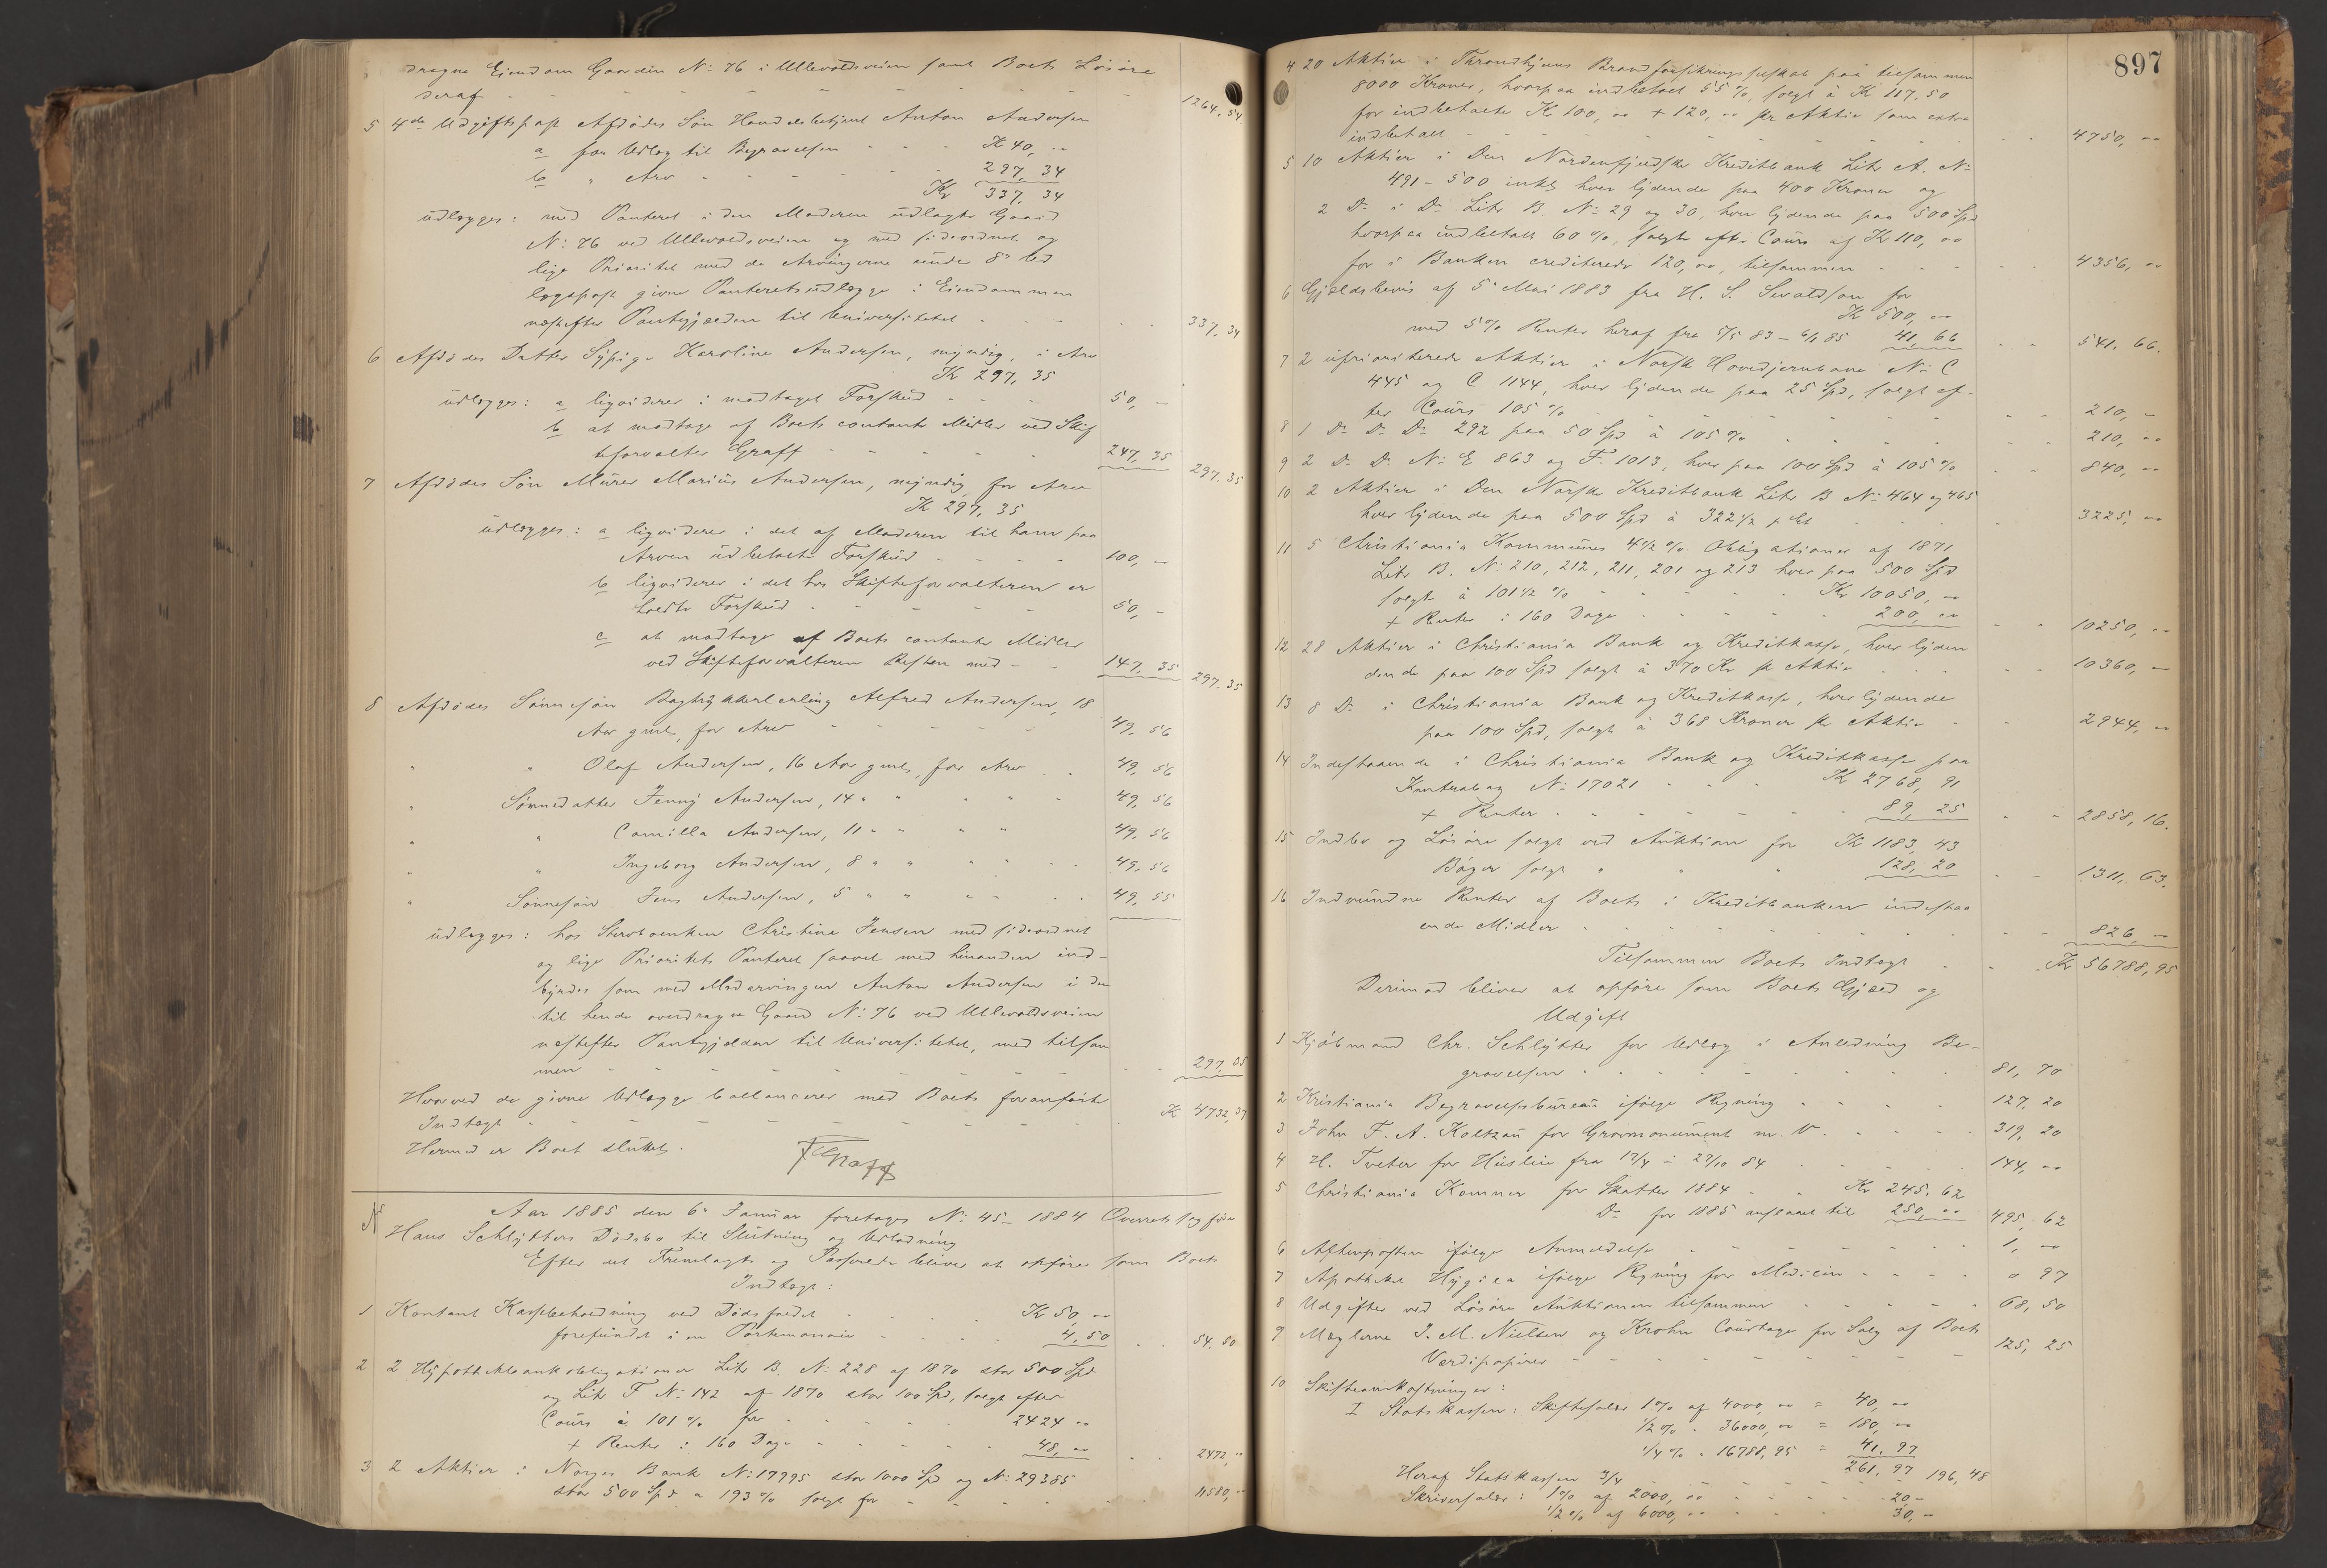 dragne Eiendom Gaarden No 76 i Ullevoldsveien samt Boets Løsøre
deraf - - - 1264,54
5 4de Udgiftspost Afdødes Søn Handelsbetjent Anton Andersen
a for Udlæg til Begravelsen - - - K 40, --
b " Arv - - - 297, 34
Kr 337, 34
udlægges: med Panteret i den Moderen udlagte Gaard
No 76 ved Ullevoldsveien og med sideordnet og
lige Prioritet med de Arvingerne under 8de Ud
lægspost givne Panteretsudlægge i Eiendommen
næstefter Pantegjælden til Universitetet - - - 337, 34
6 Afdødes Datter Sypige Karoline Andersen, myndig, i Arv
K 297, 35
udlægges: a liqviderer i modtaget Forskud - - - 50, --
b at modtage af Boets contante Midler ved Skif
teforvalter Graff - - - 247, 35 297.35
7 Afdødes Søn Murer Marius Andersen, myndig for Arv
K 297, 35
udlægges: a liqviderer i det af Moderen til ham paa
Arven udbetalte Forskud - - - 100, --
b liqviderer i det hos Skifteforvalteren er
holdte Forskud - - - 50, --
c at modtage af Boets contante Midler
ved Skifteforvalteren Resten med - - 147, 35 297.35
8 Afdødes Sønnesøn Bogtrykkerlærling Alfred Andersen, 18
Aar gml, for Arv - - - 49, 56
" " Olaf Andersen, 16 Aar gml, for Arv - - 49, 56
" Sønnedatter Jenny Andersen, 14 " " " " 49, 56
" " Camilla Andersen, 11 " " " " 49, 56
" " Ingeborg Andersen, 8 " " " " 49, 56
" Sønnesøn Jens Andersen, 5 " " " " 49, 55
udlægges: hos Stervboenken Christine Jensen med sideordnet
og lige Prioritets Panteret saavel med hinanden ind-
byrdes som med Medarvingen Anton Andersen i den
til hende overdragne Gaard No 76 ved Ullevoldsveien
næstefter Pantegjælden til Universitetet, med tilsam
men - - - 297, 35
Hvorved de givne Udlægge ballancerer med Boets foranførte
Indtægt - - - K 4732,37
Hermed er Boet sluttet.
Graff
N Aar 1885 den 6te Januar foretoges No 45 - 1884 Overretssagfører
Hans Schlytters Dødsbo til Slutning og Udlodning
Efter det Fremlagte og Passerede bliver at opføre som Boets
Indtægt:
1 Kontant Kassebeholdning ved Dødsfaldet K 50, --
forefundet i en Portemonnaie - - - 4,50 54.50
2 2 Hypothekbankobligationer Litr B. No 228 af 1870 stor 500 Spd
og Litr F No 142 af 1870 stor 100 Spd, solgt efter
Cours à 101 % for - - - 2424 --
+ Renter i 160 Dage - - - 48, -- 2472, --
3 2 Aktier i Norges Bank No 17995 stor 1000 Spd og No 29385
stor 500 Spd à 193 % solgt for - - - 11580, --
897
4 20 Aktier i Throndhjems Brandforsikringsselskab paa tilsammen
8000 Kroner, hvorpaa indbetalt 55 %, solgt à Kr 117.50
for indbetalte K 100, -- + 120, -- pr Aktie som extra
indbetalt - - - 4750, --
5 10 Aktier i Den Nordenfjeldske Kreditbank Litr A. No
491 - 500 inkl, hver lydende paa 400 Kroner og
2 Do i Do Litr B. No 29 og 30, hver lydende paa 500 Spd
hvorpaa indbetalt 60 %, solgte eftr Cours af Kr 110, --
for i Banken crediterede 120, --, tilsammen - - - 4356, --
6 Gjældsbevis af 5te Mai 1883 fra H. S. Sivaldson for
K 500, --
med 5 % Renter heraf fra 5/5 83 - 6/1 85 41, 66 541. 66.
7 2 upriorïterede Aktier i Norsk Hovedjernbane No C
445 og C 1144, hver lydende paa 25 Spd, solgt ef-
ter Cours 105 % - - - 210, --
8 1 Do Do Do 292 paa 50 Spd à 105 % - - - 210, --
9 2 Do Do No E 863 og F. 1013, hver paa 100 Spd à 105 % - - 840, --
10 2 Aktier i Den Norske Kreditbank Litr B No 464 og 465
hver lydende paa 500 Spd à 322 1/2 pCt - - - 3225, --
11 5 Christiania Kommunes 4 1/2 % Obligationer af 1871
Litr B. No 210, 212, 211, 201 og 213 hver paa 500 Spd
solgt à 101 1/2 % - - - Kr 10050, --
+ Renter i 160 Dage - - - 200, -- 10250, --
12 28 Aktier i Christiania Bank og Kreditkasse, hver lyden
dende paa 100 Spd solgt à 370 Kr pr Aktie - - 10360, --
13 8 Do i Christiania Bank og Kreditkasse, hver lydende
paa 100 Spd, solgt à 368 Kroner pr Aktie - - 2944, --
14 Indestaaende i Christiania Bank og Kreditkasse paa
Kontrabog No 17021 - - - K 2768, 91
+ Renter - - - 89, 25 2858, 16.
15 Indbo og Løsøre solgt ved Auktion for K 1183, 43
Bøger solgt " " 128, 20 1311. 63.
16 Indvundne Renter af Boets i Kreditbanken indestaa
ende Midler - - - 826, --
Tilsammen Boets Indtægt - - Kr 56788,95
Derimod bliver at opføre som Boets Gjæld og
Udgift
1 Kjøbmand Chr. Schlytter for Udlæg i Anledning Be-
gravelsen - - - 81, 70
2 Kristiania Begravelsesbureau ifølge Regning - - - 127, 20
3 John F. A. Koltzau for Gravmonument m. V. - - - 319, 20
4 H. Tveter for Husleie fra 17/4 - 27/10 84 - - - 144, --
5 Christiania Kemner for Skatter 1884 - - Kr 245. 62
Do for 1885 anslaaet til 250, -- 495, 62
6 Aftenposten ifølge Anmeldelse - - - 1, --
7 Apotheket Hygiea ifølge Regning for Medicin - - - 0 97
8 Udgifter ved Løsøre Auktionen tilsammen - - - 68, 50
9 Mæglerne J. M. Nielsen og Krohn Courtage for Salg af Boets
Verdipapirer - - - 125, 25
10 Skifteomkostninger:
I Statskassen: Skiftesaler 1 % af 4000, -- = 40, --
1/2 % " 36000, -- = 180, --
1/4 % " 16788, 95 = 41. 97
261. 97
Heraf Statskassen 3/4 - - - 196, 48
Skriversaler: 1 % af 2000, -- - - - 20 --
1/2 % af 6000, -- - - - 30, --